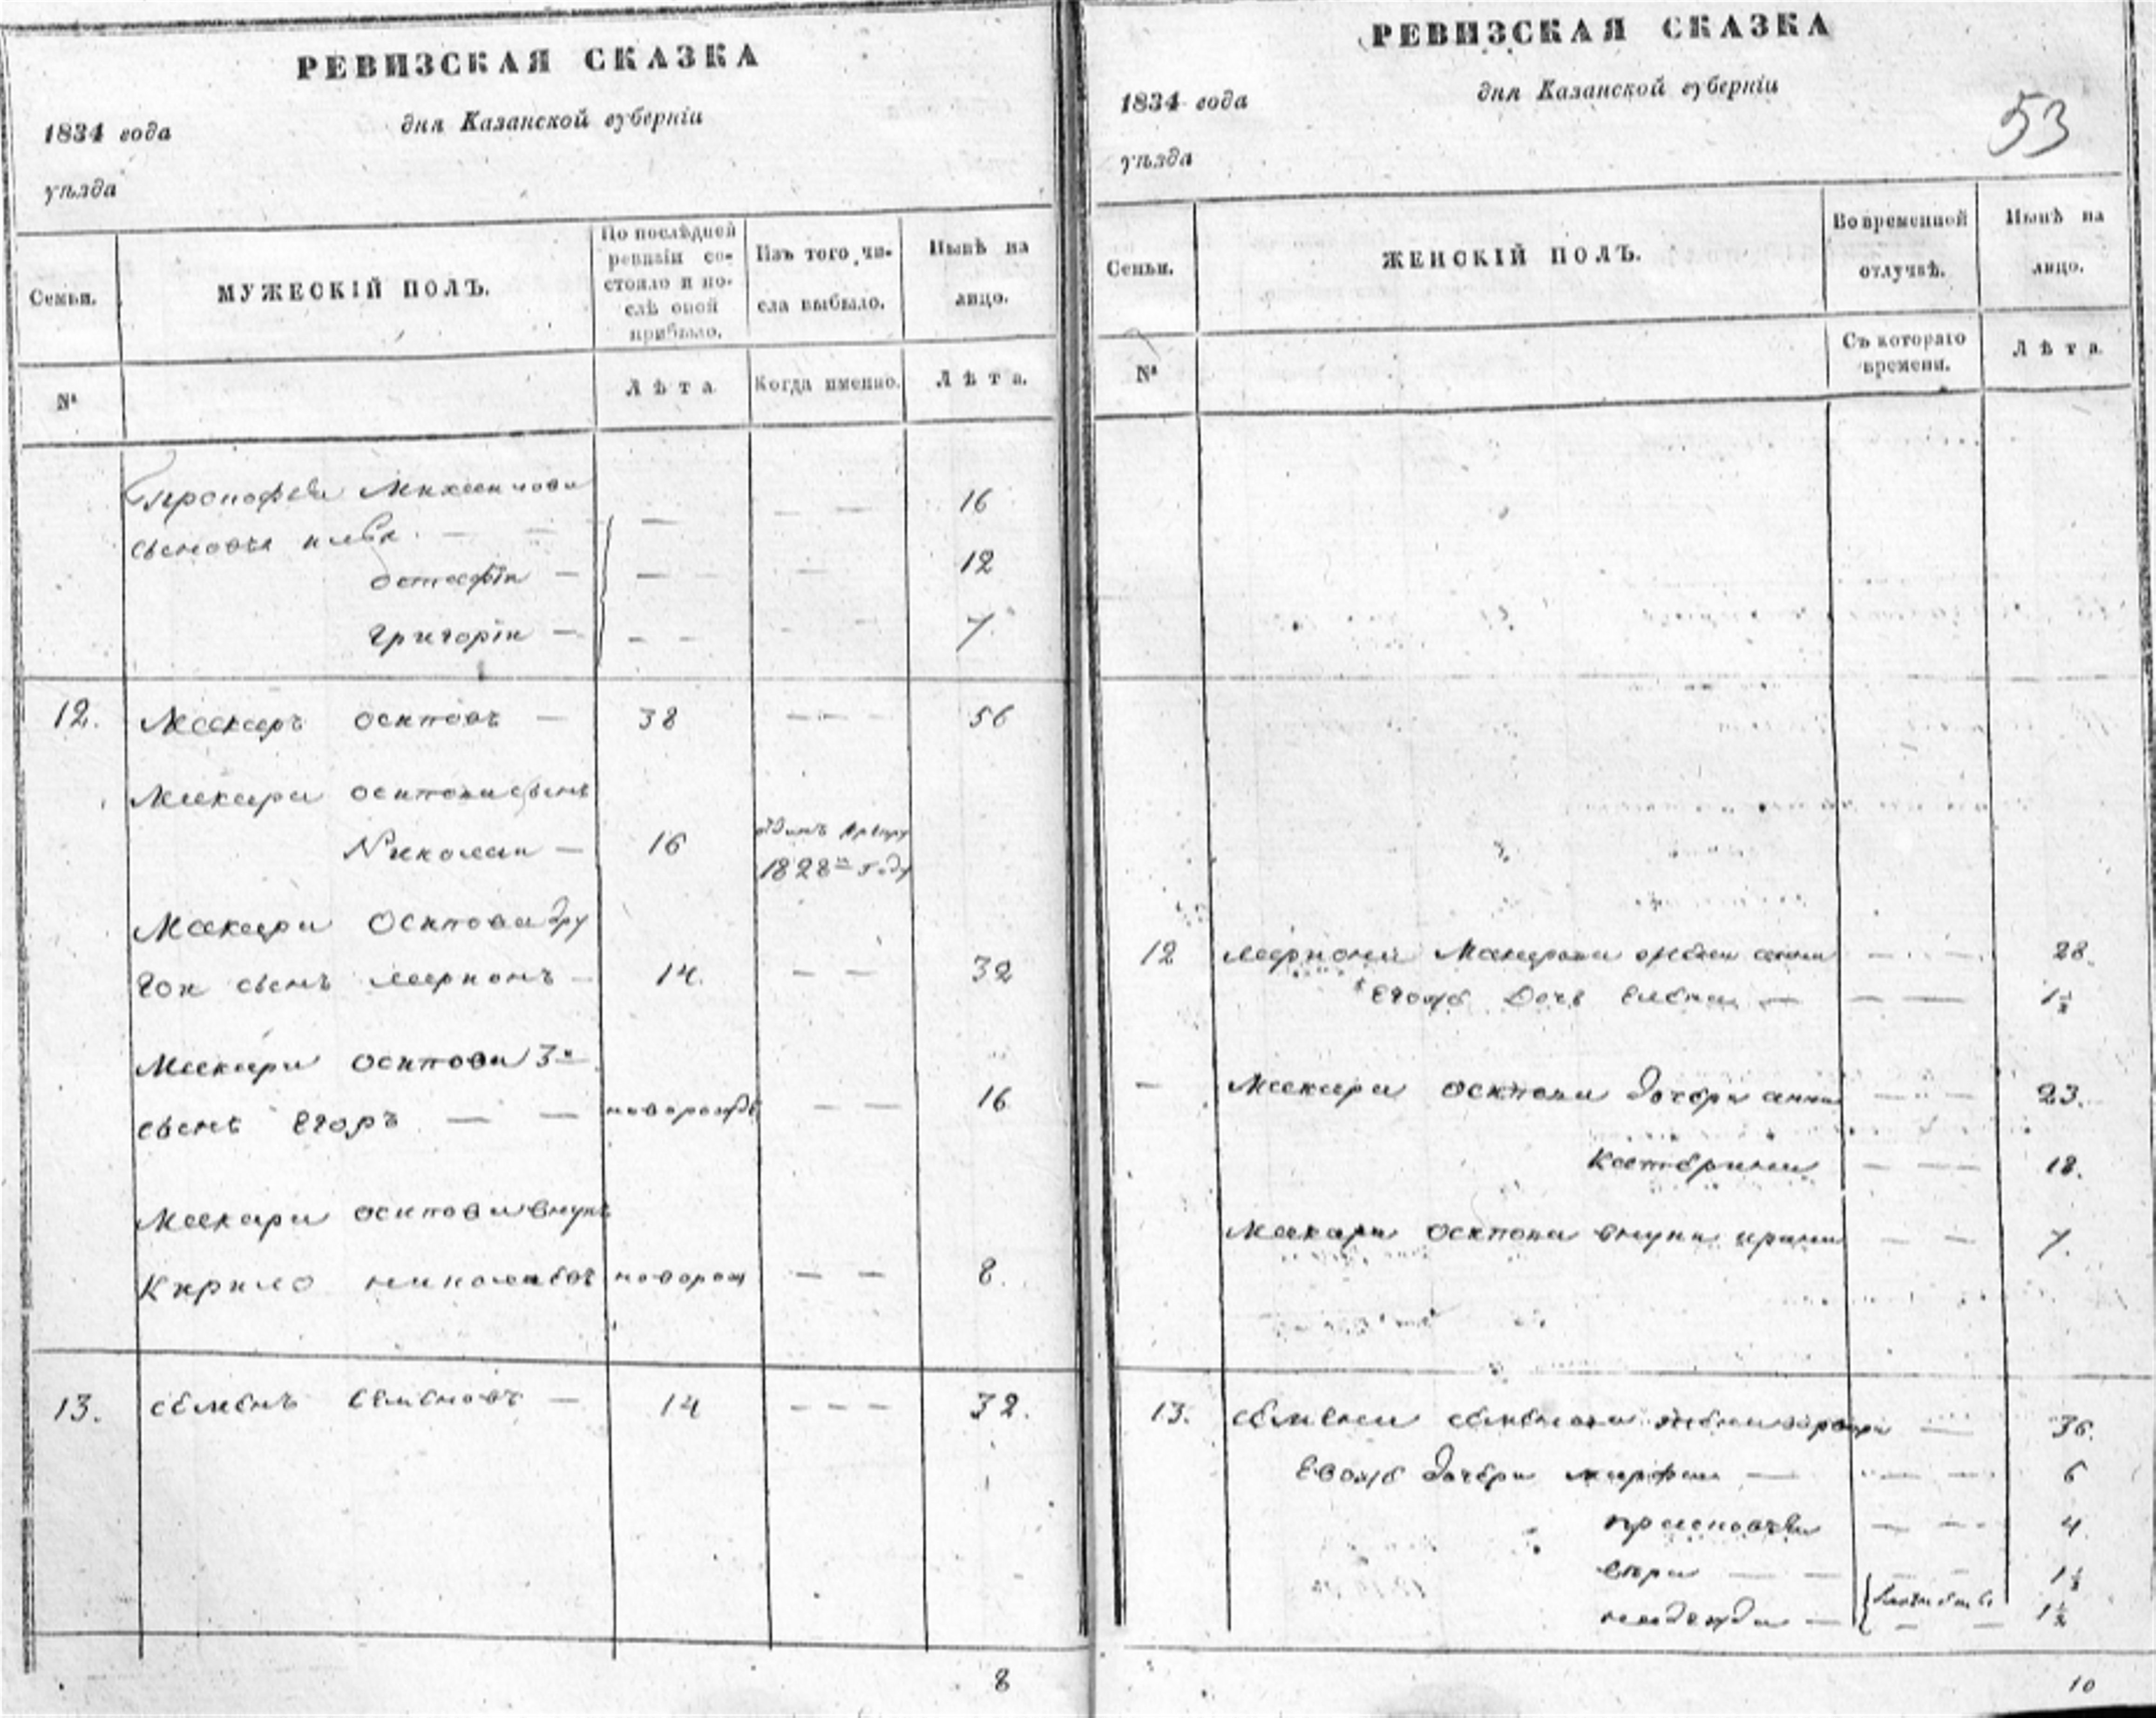 РЕВИЗСКАЯ СКАЗКА
1834 года
дня Казанской губерніи
уѣзда
Семьи.
МУЖЕСКІЙ ПОЛЪ.
По послѣдней
ревизіи со-
стояло и по-
слѣ оной
прибыло.
Изъ того чи-
сла выбыло.
Нынѣ на
лицо.
№
Лѣта
Когда именно.
Лѣта.
16
сыновья
остафіи — 12
Григоріи — 7.
12. Макаръ осиповъ — 38 — — — 56
Макара осипова сынъ
Николаи — 16
1828 году
Макара Осипова дру
гои сынъ Ларионъ — 14. — — 32
Макара осипова 3й
сынъ Егоръ — — новорожд — — 16
Макара осипова внукъ
Кирило николаевъ новорож — — 8.
13. семенъ семеновъ — 14 — — — 32.
8
РЕВИЗСКАЯ СКАЗКА
1834 года
дня Казанской губерніи
53
уѣзда
Семьи.
ЖЕНСКІЙ ПОЛЪ.
Во временной
отлучкѣ.
Нынѣ на
лицо.
№
Съ котораго
времени.
Лѣта
12 Лариона Макарова жена анна — — — 28.
Егожъ Дочь Елена — — — 1½
— Макара осипова дочери анна — — — 23.
Катерина — — — 18.
Макара осипова внука ирина — — 7.
13. семена семенова жена варвара — 36.
Евожъ дочери марфа — — — — 6
прасковья — — — 4
1½
надежда — 1½
10